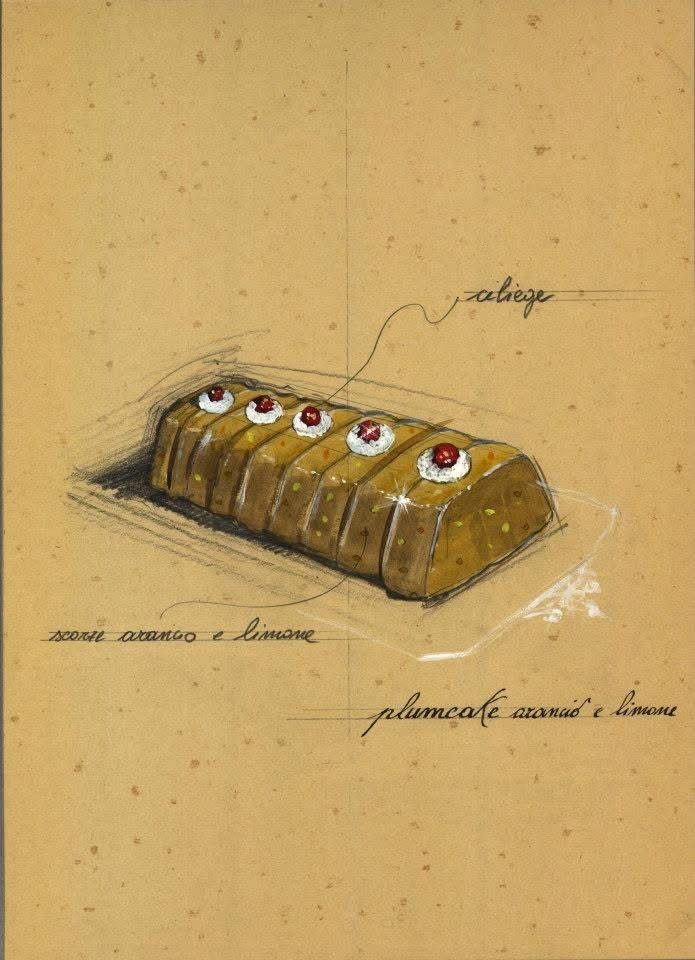 ciliege
scorze arancio e limone
plumcake arancio e limone